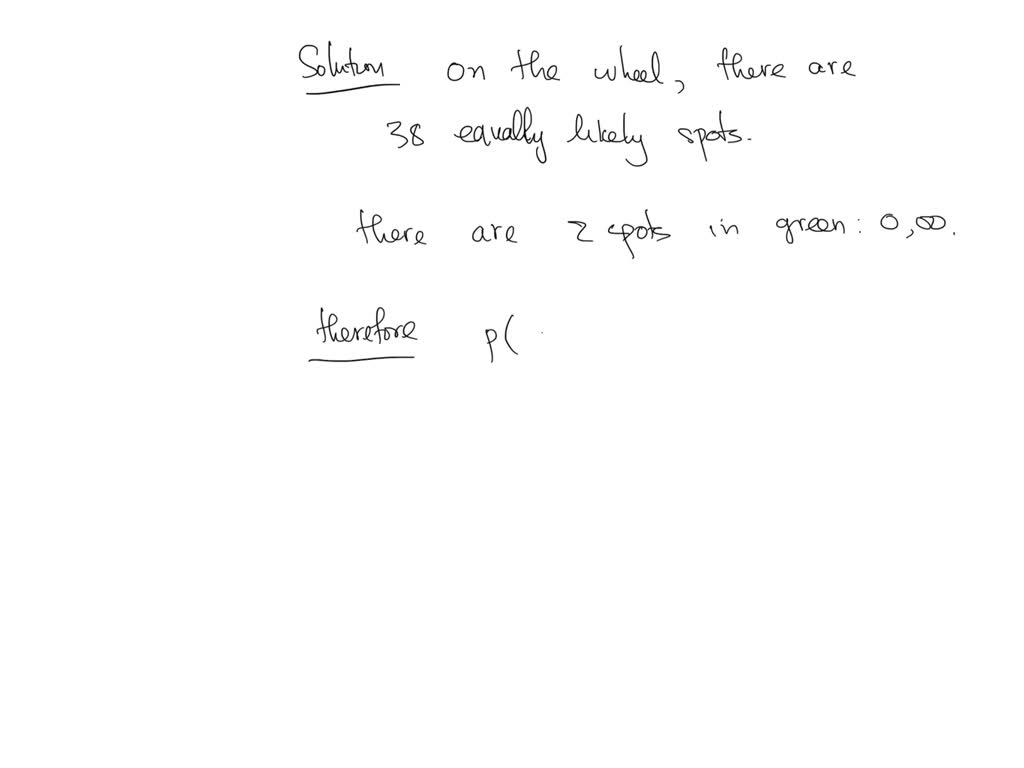 Solution on the wheel, there are
38 equally likely spots.
there are 2 spots in green: 0, 00.
therefore p(